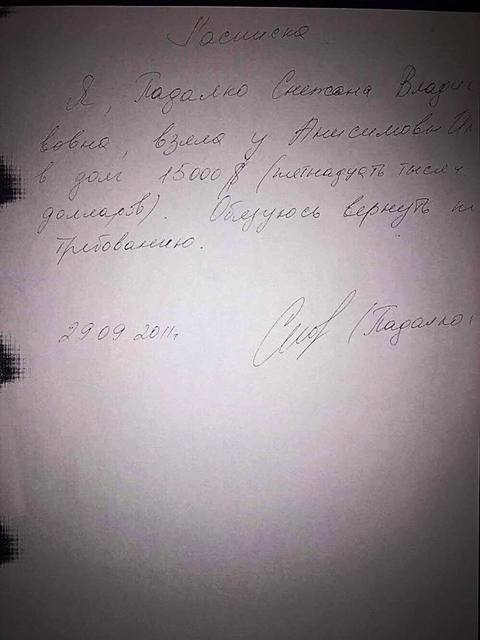 Расписка
Я, Падалко Снежана Владис
вовна, взяла у Анисимовы Ал
в долг 15000 $ (пятнадцать тысяч
долларов). Обязуюсь вернуть по
требованию.
29 09 2011г (Падалко